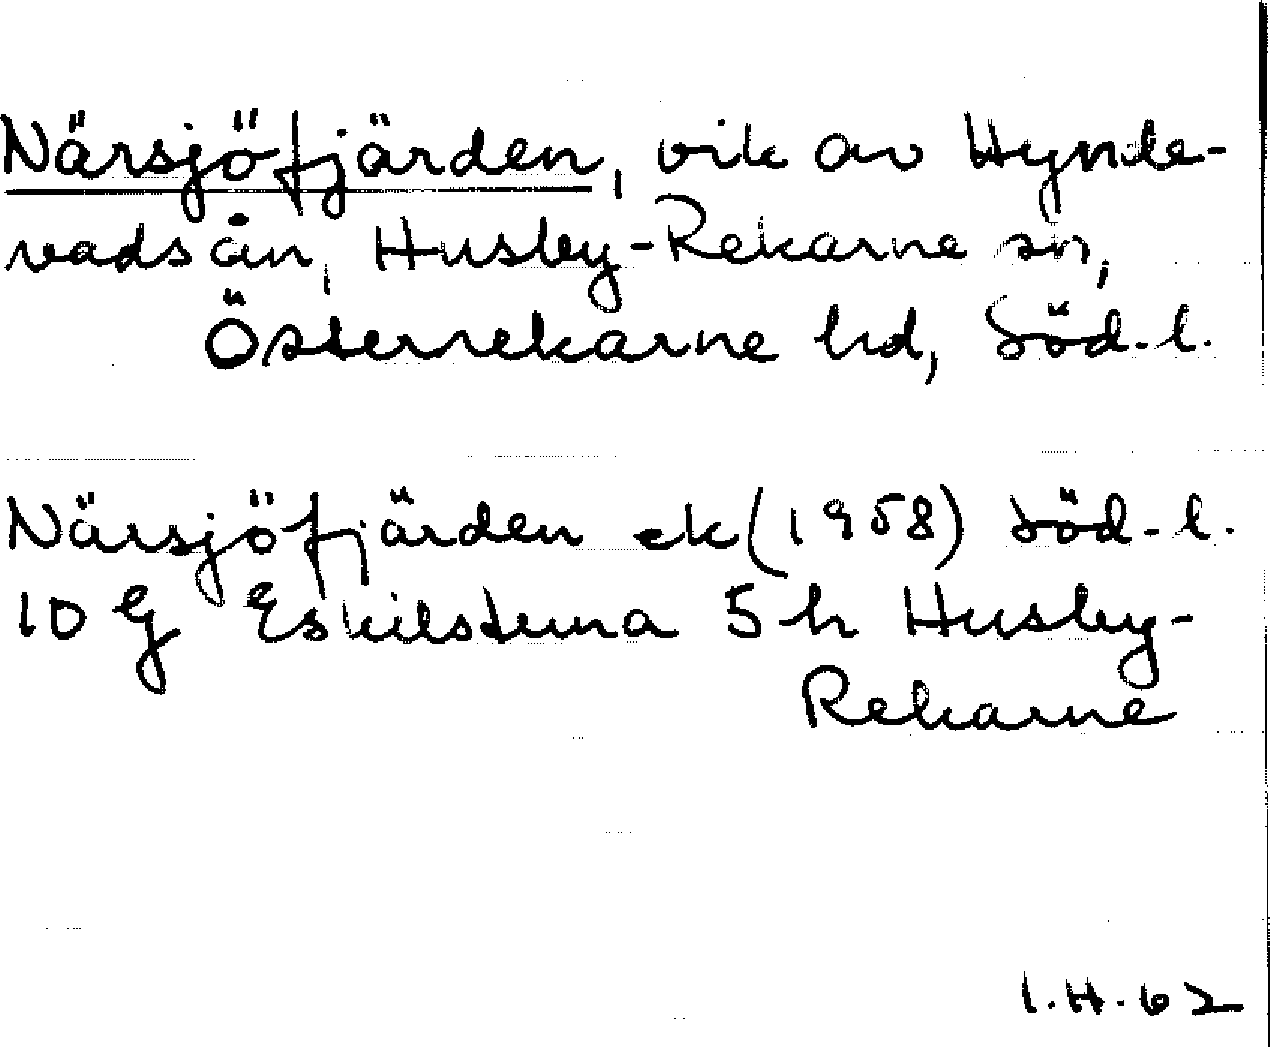 Närsjöfjärden, vik av Hynde-
vadsån, Husby-Rekarne sn,
Österrekarne hd, Söd.l.
Närsjöfjärden ek (1958) Söd.l.
10 G Eskilstuna 5 h Husby-
Rekarne
I.H.62